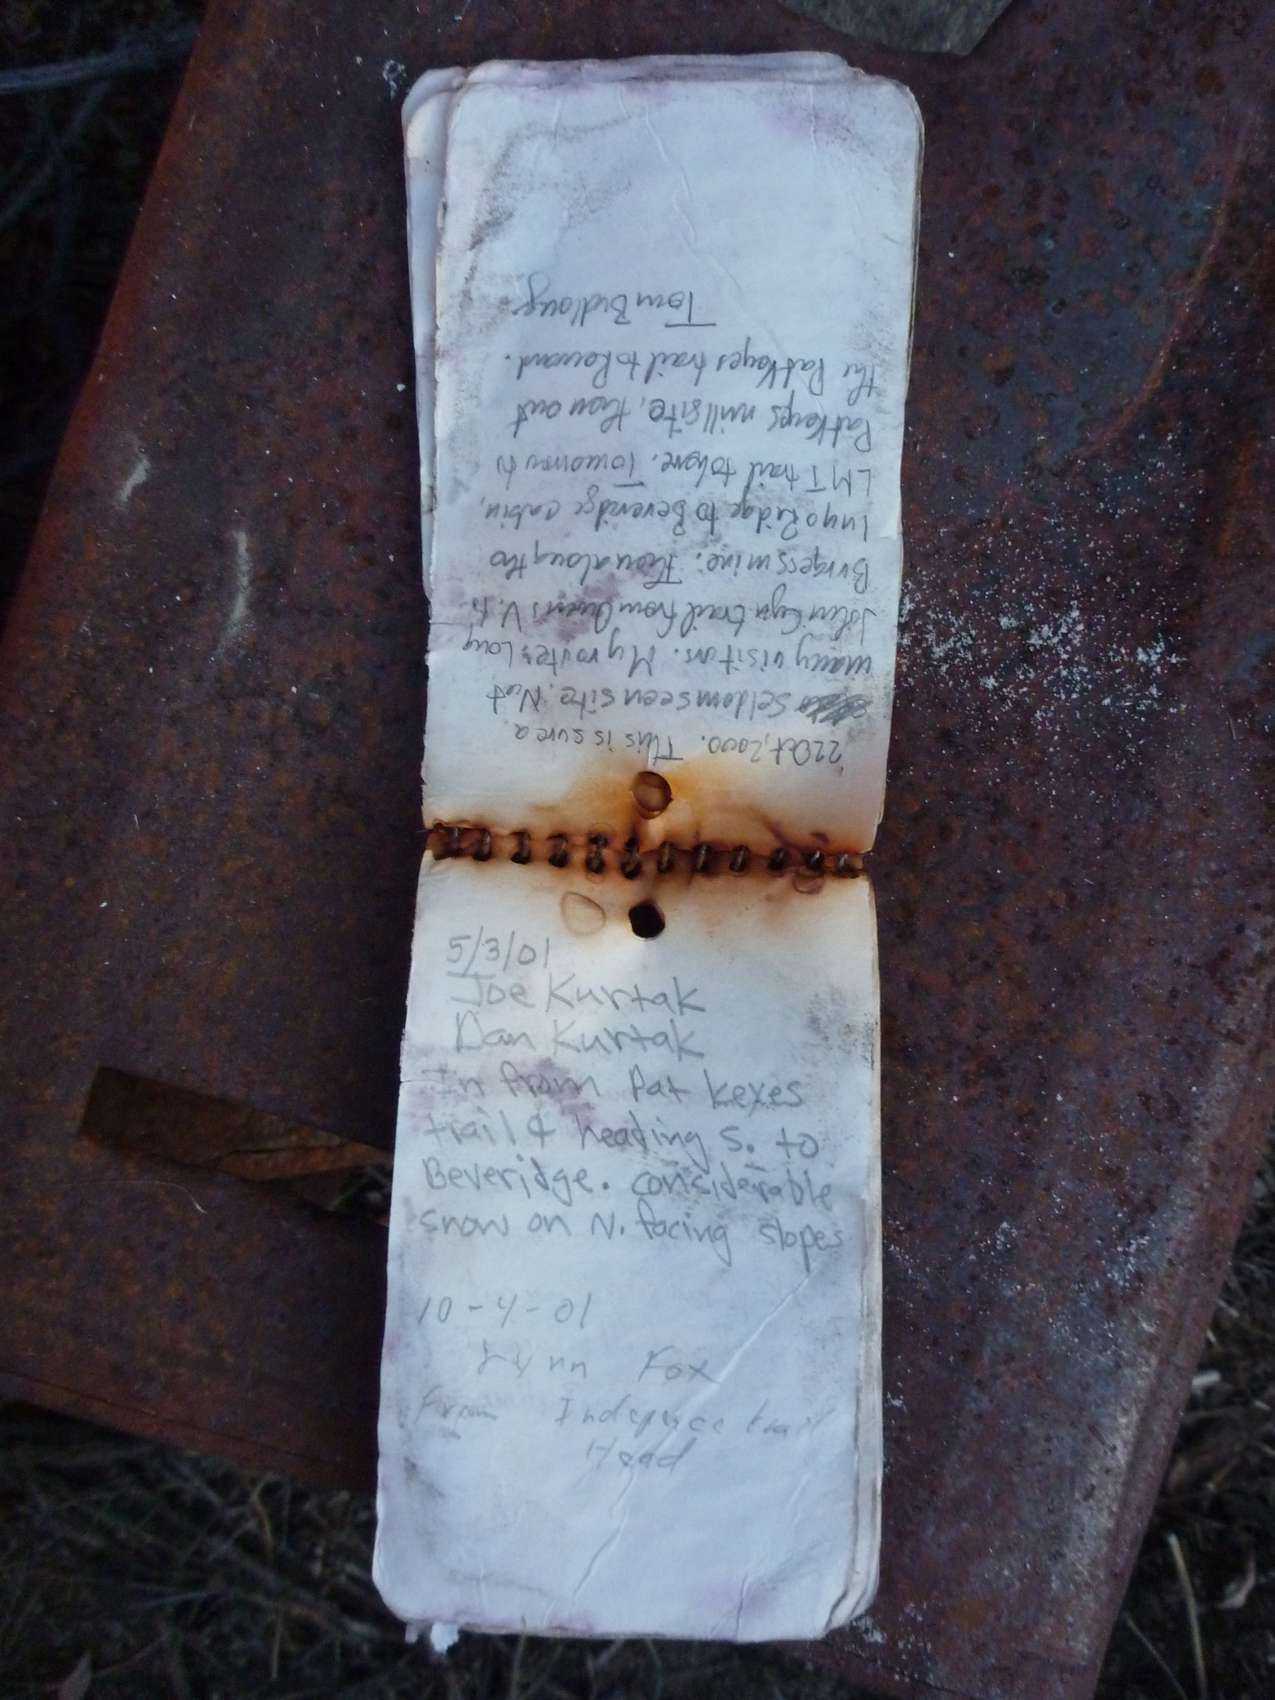 22 Oct, 2000. This is sure a
Seldom seen site. Not
many visitors. My route: Long
John Cyn trail from Owens V. to
Burgess mine. Then along the
Inyo Ridge to Beveridge cabin,
LMT trail to here. Tomorrow to
Pat Keyes millsite, then out
the Pat Keyes trail to Locust.
Tom Budlong
5/3/01
Joe Kurtak
Dan Kurtak
In from Pat Keyes
trail & heading S. to
Beveridge. considerable
snow on N. facing slopes
10-4-01
Lynn Fox
From trail
Head